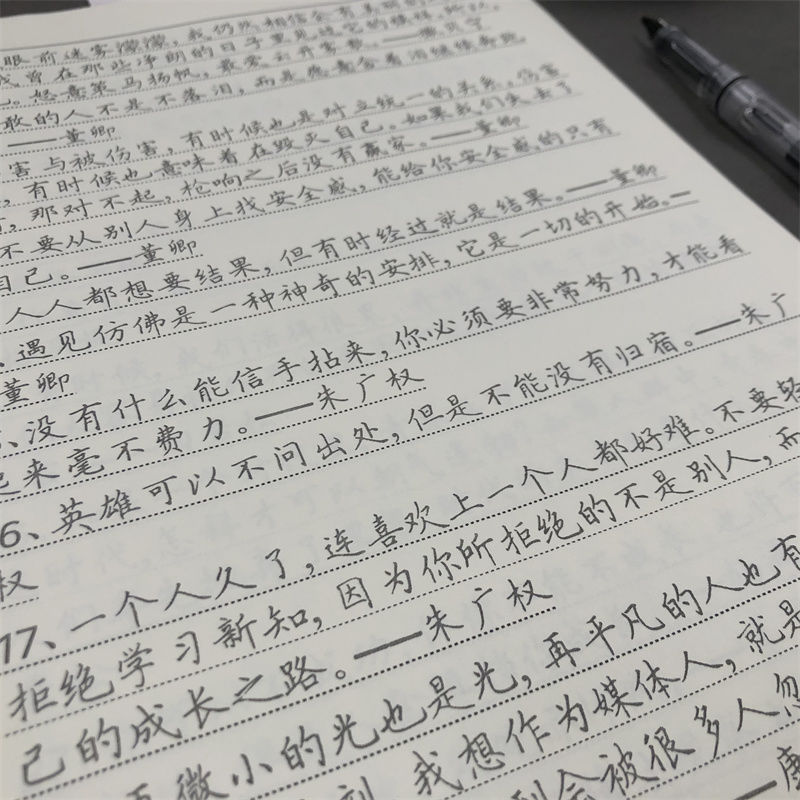 眼前迷雾濛濛，我仍然相信会有美丽的
我曾在那些净朗的日子里见过它的模样。所以，
。恣意策马扬帆，最需云开雾散。——
敢的人不是不落泪，而是愿意含着泪继续奔跑
——董卿
害与被伤害，有时候也是对立统一的关系。伤害
，有时候也意味着在毁灭自己。如果我们失去了
，那对不起，枪响之后没有赢家。——董卿
不要从别人身上找安全感，能给你安全感的只有
自己。——董卿
人人都想要结果，但有时经过就是结果。——董卿
、遇见仿佛是一种神奇的安排，它是一切的开始。—
董卿
、没有什么能信手拈来，你必须要非常努力，才能看
起来毫不费力。——朱广权
6、英雄可以不问出处，但是不能没有归宿。——朱广
权
17、一个人久了，连喜欢上一个人都好难。不要轻
拒绝学习新知，因为你所拒绝的不是别人，而
己的成长之路。——朱广权
再微小的光也是光，再平凡的人也有
刻，我想作为媒体人，就是
会被很多人忽
——康